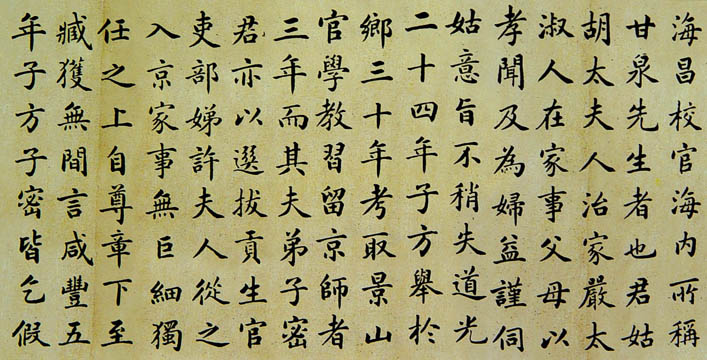 海昌校官海内所稱
甘泉先生者也君姑
胡太夫人治家嚴太
淑人在家事父母以
孝聞及為婦益謹伺
姑意旨不稍失道光
二十四年子方舉於
鄉三十年考取景山
官學教習留京師者
三年而其夫弟子密
君亦以選拔貢生官
吏部娣許夫人從之
入京家事無巨細獨
任之上自尊章下至
臧獲無間言咸豐五
年子方子密皆乞假